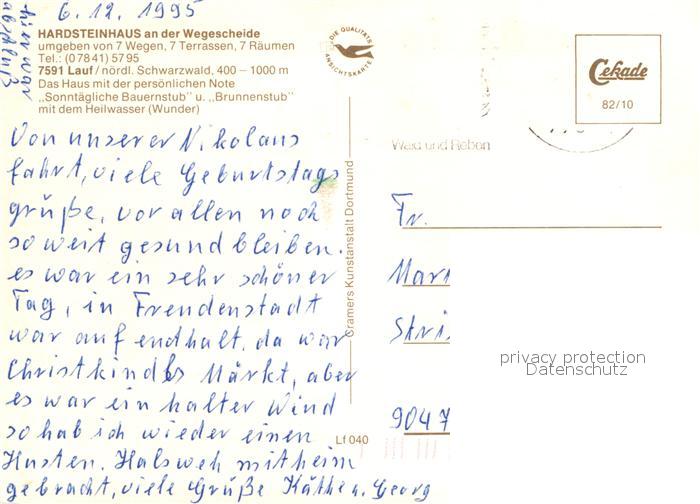 6.12.1995
hier war
abschluß
HARDSTEINHAUS an der Wegescheide
umgeben von 7 Wegen, 7 Terrassen, 7 Räumen
Tel.: (07841) 5795
7591 Lauf / nördl. Schwarzwald, 400 – 1000 m
Das Haus mit der persönlichen Note
„Sonntägliche Bauernstub" u. „Brunnenstub"
mit dem Heilwasser (Wunder)
Von unserer Nikolaus
fahrt, viele Geburtstags
grüße, vor allen noch
so weit gesund bleiben.
es war ein sehr schöner
Tag, in Freudenstadt
war aufendhalt, da war
Christkindls Märkt, aber
es war ein kalter Wind
so hab ich wieder einen
Husten. Halsweh mitheim
gebracht, viele Grüße Käthe u. Georg
DIE QUALITÄTS
ANSICHTSKARTE
Cramers Kunstanstalt Dortmund
Lf 040
Cekade
82/10
Wald und Reben
Fr.
9047
privacy protection
Datenschutz